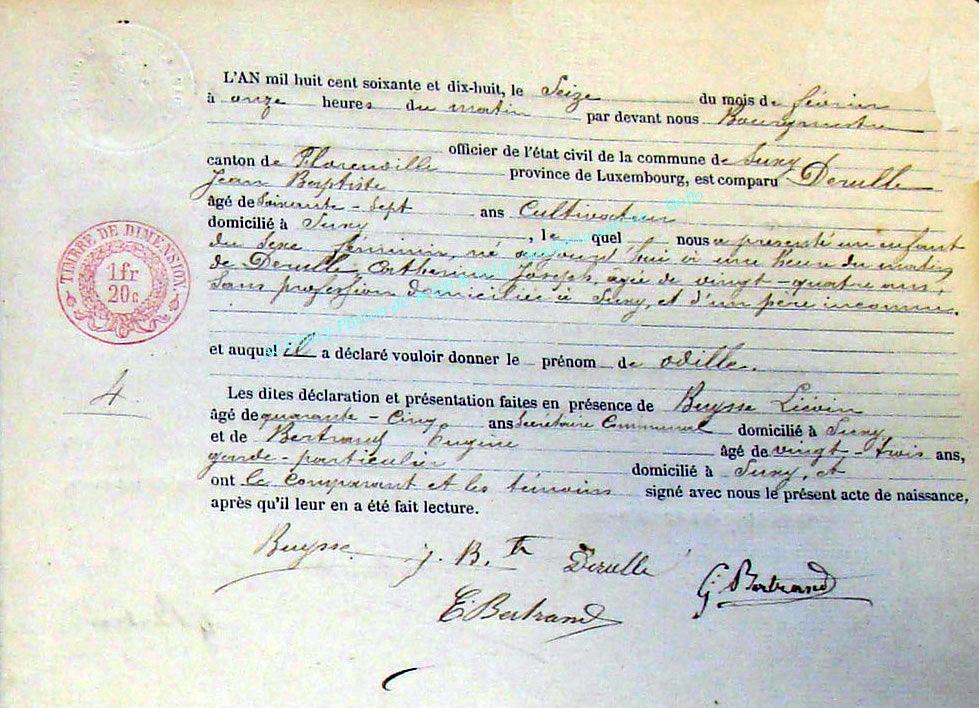 L'AN mil huit cent soixante et dix-huit, le Seize du mois de février
à onze heures du matin par devant nous Bourgmestre
officier de l'état civil de la commune de Suxy
canton de Florenville province de Luxembourg, est comparu Derulle
Jean Baptiste
âgé de Soixante-Sept ans Cultivateur
domicilié à Suxy, le quel nous a présenté un enfant
du Sexe féminin, né aujourd'hui à une heure du matin
de Derulle Catherine Joseph, agée de vingt-quatre ans,
Sans profession domiciliée à Suxy, et d'un père inconnu.
et auquel il a déclaré vouloir donner le prénom de odille.
Les dites déclaration et présentation faites en présence de Buysse Liévin
âgé de quarante-Cinq ans Secrétaire Communal domicilié à Suxy,
et de Bertrand Eugène âgé de vingt-trois ans,
garde-particulier domicilié à Suxy, et
ont le Comparant et les témoins signé avec nous le présent acte de naissance,
après qu'il leur en a été fait lecture.
Buysse J. B.te Derulle G. Bertrand
E. Bertrand
TIMBRE DE DIMENSION
1 fr
20 c
4